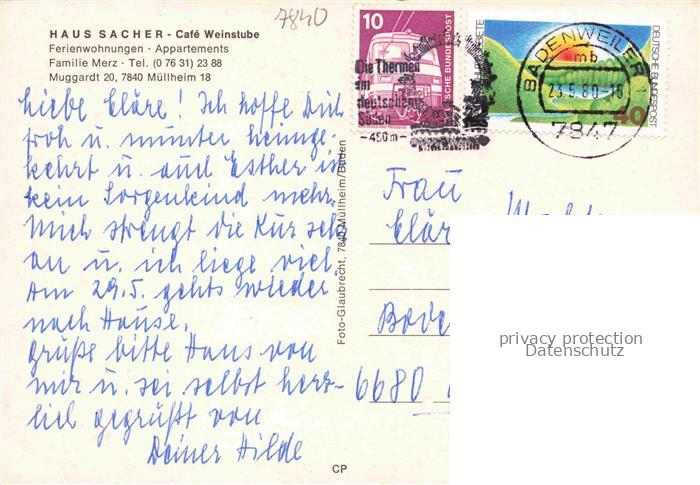 HAUS SACHER - Café Weinstube
Ferienwohnungen · Appartements
Familie Merz · Tel. (0 76 31) 23 88
Muggardt 20, 7840 Müllheim 18
7840
Liebe Cläre! Ich hoffe Dich
froh u. munter heimge-
kehrt u. auch Esther is
kein Sorgenkind mehr.
Mich strengt die Kur seh
an u. ich liege viel.
Am 29.5. gehts wieder
nach Hause.
Grüße bitte Hans von
mir u. sei selbst herz-
lich gegrüßt von
Deiner Hilde
10
DEUTSCHE BUNDESPOST
Die Thermen
im
deutschen
Süden
- 450m -
DEUTSCHE BUNDESPOST
40
BADENWEILER
mb
23.5.80-15
7847
Foto-Glaubrecht, 7840 Müllheim/Baden
Frau
Clär
6680
privacy protection
Datenschutz
CP